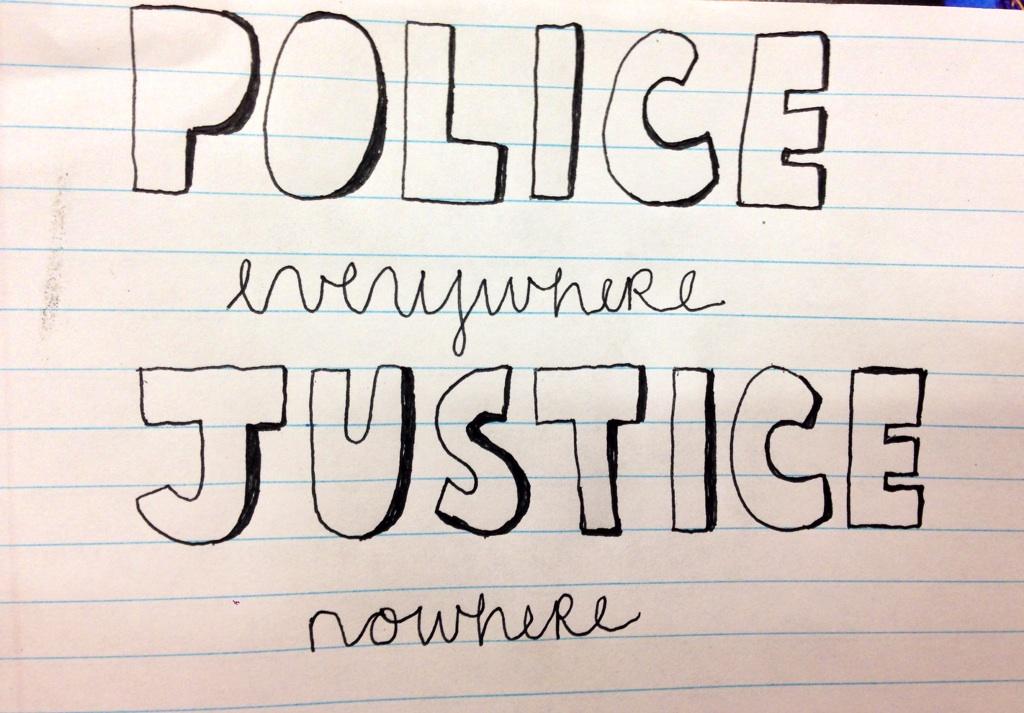 POLICE
everywhere
JUSTICE
nowhere